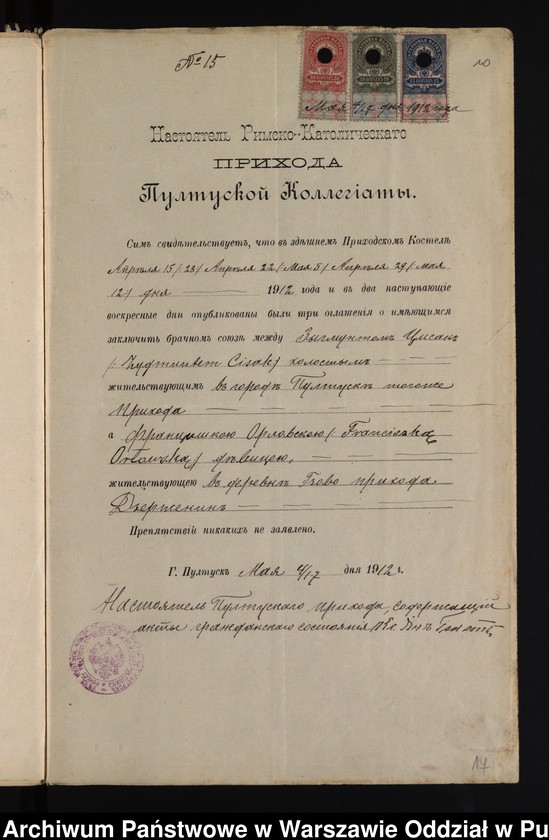 № 15
10
Мая 4/17 дня 1912 года
Настоятель Римско-Католическаго
ПРИХОДА
Пултуской Коллегіаты.
Симъ свидѣтельствуетъ, что въ здѣшнемъ Приходскомъ Костелѣ
Апрѣля 15/28/ Апрѣля 22/Мая 5/ Апрѣля 29/Мая
12/ дня 1912 года и въ два наступающіе
воскресные дни опубликованы были три оглашенія о имѣющимся
заключить брачномъ союзѣ между Зыгмунтомъ Цисакъ
/:Zygmunt Cisak:/ холостымъ
жительствующимъ въ городѣ Пултускѣ тогоже
Прихода
а Францишкою Орловскою /Franciszką
Orłowską/ дѣвицею,
жительствующею въ деревнѣ Гзово прихода
Дзерженинъ
Препятствій никакихъ не заявлено.
Г. Пултускъ Мая 4/17 дня 1912 г.
Настоятель Пултускаго прихода, содержащій
акты гражданскаго состоянія
17
Archiwum Państwowe w Warszawie Oddział w Pu